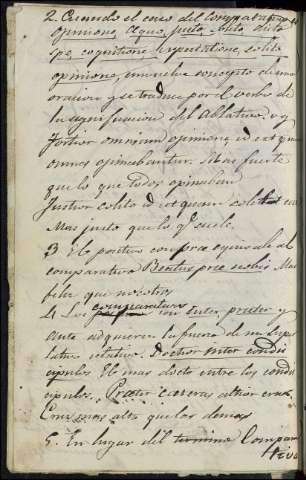 2. Cuando el caso del comparativo
opinione, æquo, justo, solito, dicto
spe, cognitione, expectatione, solito
opinione, envuelve concepto de una
oracion y se traduce por el verbo de
la significacion del Ablativo. v. g.
Fortior omnium opinione, id est quam
omnes opinabantur. Mas fuerte
que lo que todos opinaban
Justior solito id est quam solebat
Mas justo que lo q.e suele.
3 El positivo con præ equivale al
comparativo Beatus præ nobis Mas
feliz que nosotros
comparativos
4 Los con inter, præter y
ante adquieren la fuerza de un super
lativo relativo. Doctior inter condis
cipulos El mas docto entre los condis
cipulos. Præter cæteras altior crux
Cruz mas alta que las demas
5. En lugar del termino Compara
tivo